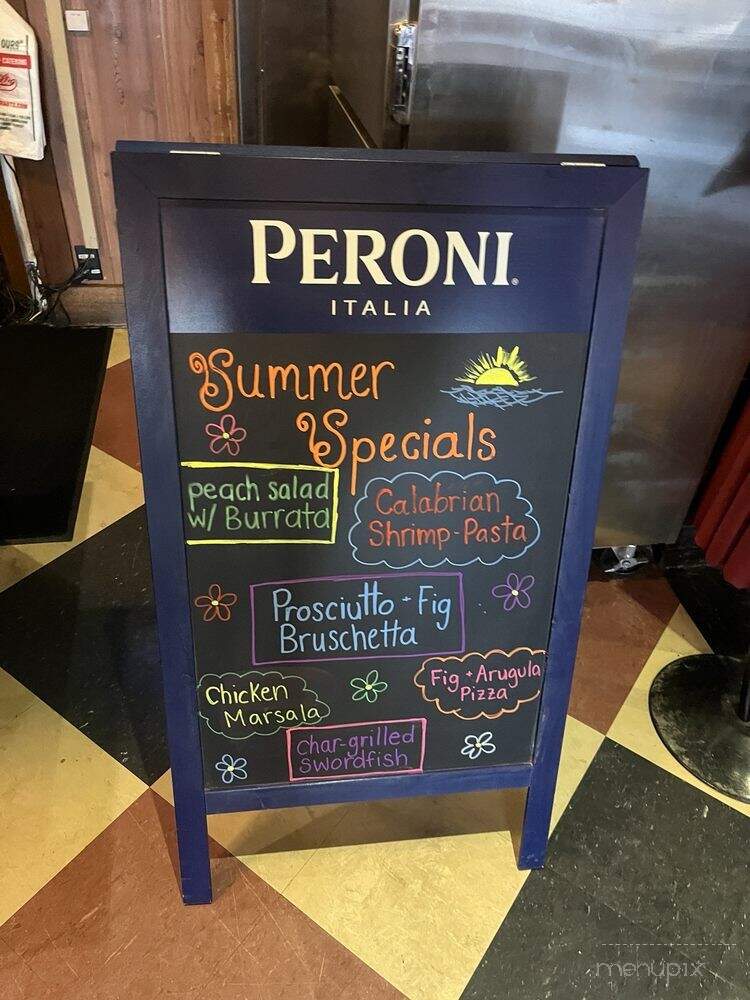 OURS"
CATERING
PERONI®
ITALIA
Summer
Specials
peach salad
w/ Burrata
Calabrian
Shrimp-Pasta
Prosciutto + Fig
Bruschetta
Chicken
Marsala
Fig + Arugula
Pizza
Char-grilled
Swordfish
menupix